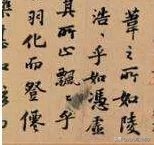 葦之所如陵
浩〻乎如馮虛
其所止飄〻乎
羽化而登僊